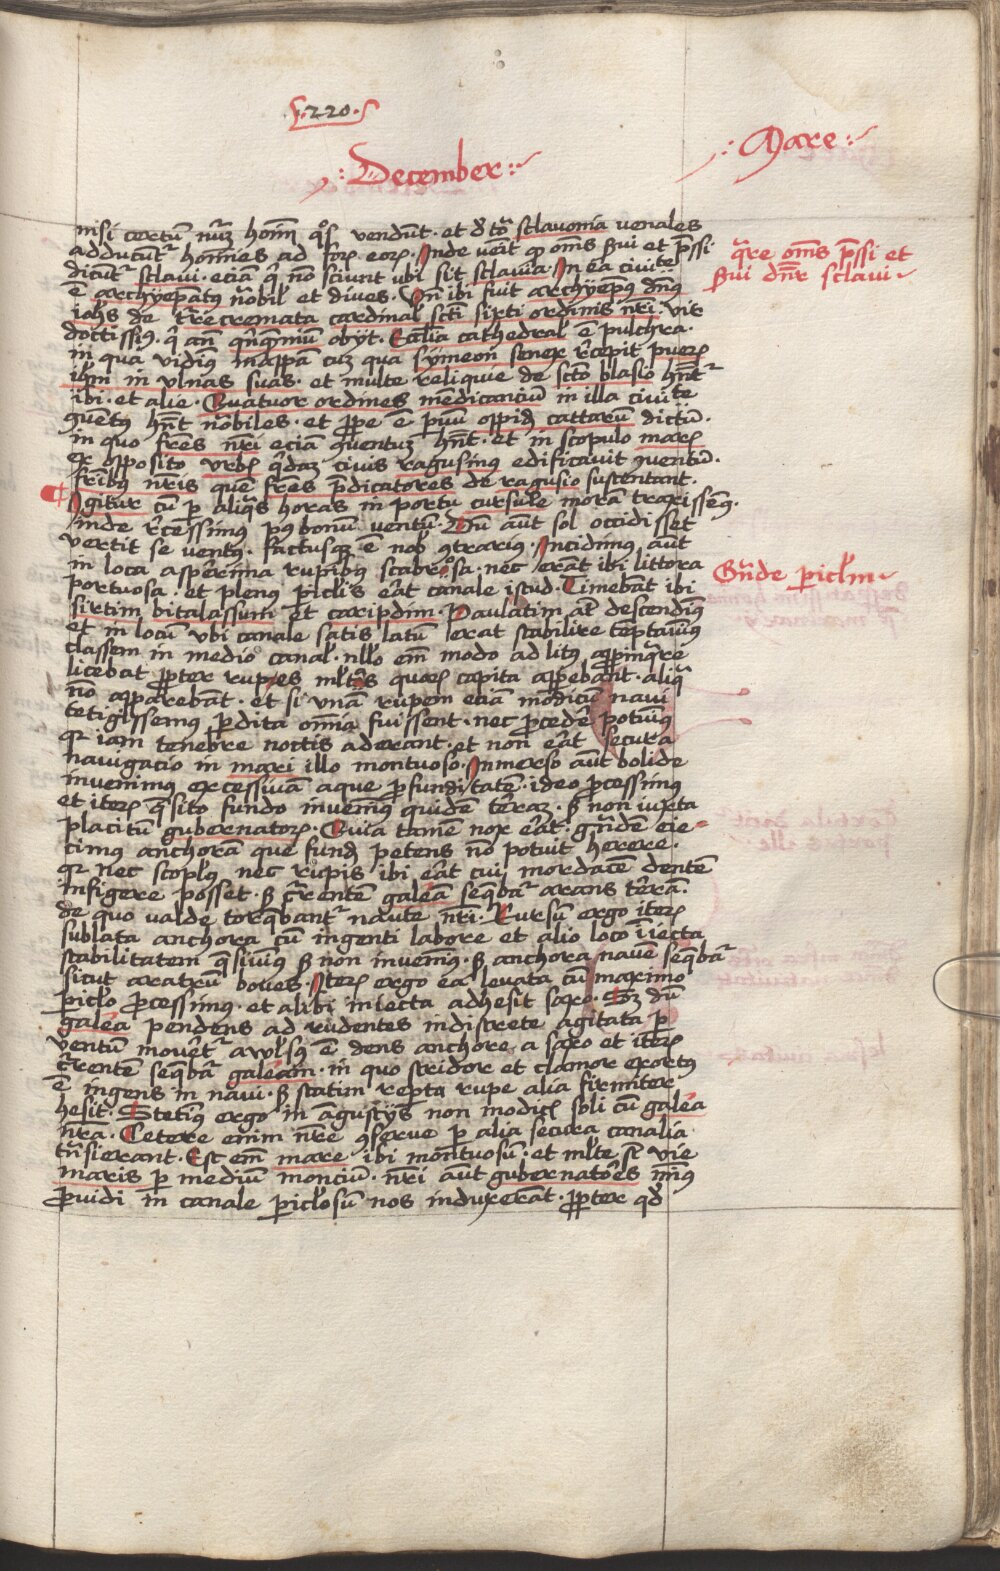 ·220·
December
Mare
nisi certū nūꝝ homīm q̊s vendūt · et d̕ tō sclauonia venales
adducūtᷣ homīnes ad forꝝ eorꝝ · Inde veīt qd oms s̕ui et p̄ssi
dicūtᷣ sclaui · eciā q̕ nō sciunt ubi sit sclauia · In ea ciuite
ē archyep̄atꝰ nōbil̕ et diues · Vn̄ ibi fuit archyep̄us dn̄us
ioh̄s de tr̄recremata cardinal̕ scti sixti ordinis nr̄i · vir
doctissiꝰ · q̕ an̄ qn̄q̄niū obyt · Eccl̄ia cathedral̕ ē pulchra ·
in qua vidiꝰ mappā cuꝫ qua symeon senex r̄cepit puerꝝ
ih̄m in vlnas suas · et multe reliquie de scto blasio hn̄tᷣ
ibi · et alie · Quatuor ordines mēdicanciū in illa ciuite
ꝯuētꝰ hn̄t nōbiles · et ꝓpe ē p̱uū oppidꝝ cattarū dictū ·
in quo fr̄es nr̄i eciā ꝯuentuꝫ hn̄t · et in scopulo marꝝ
ex opposito vrbꝝ q̄daꝫ ciuis ragusinꝰ edificauit ꝯuentū ·
fr̄ibꝰ nr̄is que fr̄es p̄dicatores de ragusio sustentant ·
Igitur cū p̱ aliq̄s horas in portu cursule morā traxissēꝰ ·
inde r̄cessimꝰ pꝰ bonū ventū · Dū aut̄ sol occidisset
vertit se ventꝰ · factusqꝫ ē nob̕ ꝯtrariꝰ · Incidimꝰ aut̄
in loca asperrima rupibꝰ scabrosa · nec erāt ibi littora
portuosa · et plenus p̱icl̄is erat canale istud · Timebāt ibi
sirtim bitalassum et caripdim · Paulatim at̄ descendimꝰ
et in locū vbi canale satis latū erat stabilire tēptauimꝰ
classem in medio canal̕ · nll̕o em̄ modo ad litꝰ appinq̄re
licebat ꝓpter rupes ml̕tas quarꝝ capita appebant · aliq̄
nō apparebāt · et si vnā rupem eciā modicū naui
tetigissemus p̱dita omīa fuissent · nec ꝓcedē potuimꝰ
qꝛ iam tenebre noctis aderant · et non erāt secura
nauigacio in mari illo montuoso · Inmerso aut̄ bolide
inuenimꝰ excessiuā aque ꝓfunditatē · ideo ꝓcessimꝰ
et iterꝝ q̄sito fundo inuenimꝰ quidē terraꝫ · sꝫ non iuxta
placitū gubernatorꝝ · Quia tamē nox erat · gr̄ndē eie-
cimꝰ anchorā que fundꝝ petens nō potuit herere ·
qꝛ nec scopl̕ꝰ nec rupis ibi erāt cui mordacē dentē
infigere posset · sꝫ c̄rentē galeā seq̄baᷣ arans terrā ·
de quo valde torq̄bantᷣ naute nr̄i · Rursū ergo iterꝝ
sublata anchora cū ingenti labore et alio loco īiecta
stabilitatem q̄siuimꝰ sꝫ non inuenimꝰ · sꝫ anchora nauē seq̄baᷣ
sicut aratrū boues · Iterꝝ ergo ea leuata cū maximo
p̱icl̕o ꝓcessimꝰ · et alibi iniecta adhesit saxo · Sꝫ dū
galea pendens ad rudentes indiscrete agitata p̱
ventū mouēᷣ awlsꝰ ē dens anchore a saxo et iterꝝ
c̄rentē seq̄baᷣ galeam · in quo stridor et clamor exortꝰ
ē ingens in naui · sꝫ statim rep̱ta rupe alia firmiter
hesit · Stetimꝰ ergo in āgustÿs non modicꝝ soli cū galea
nr̄a · Cetere enim nr̄e ꝯserue p̱ alia secura canalia
trāsierant · Est em̄ mare ibi montuosū · et ml̕te st̄ vie
maris p̱ mediū monciū · nr̄i aut̄ gubernatores mīꝰ
ꝓuidi in canale p̱icl̕osū nos induxerāt · ꝓpter qd̕
q̄re oms p̄ssi et
s̕ui dn̄r sclaui
Gn̄de picl̕m